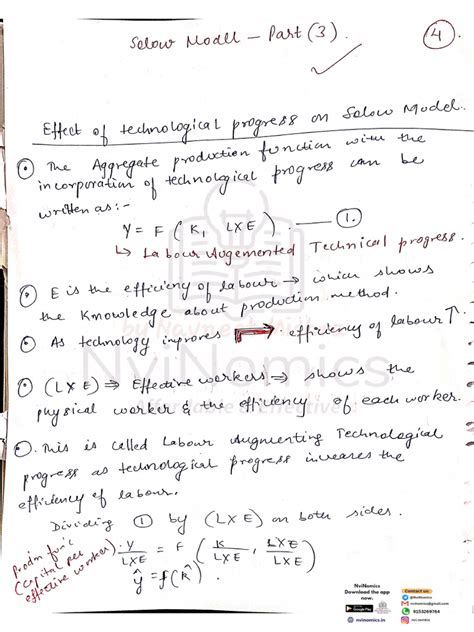 Solow Model - Part (3).
4.
Effect of technological progress on Solow Model.
The Aggregate production function with the
incorporation of technological progress can be
written as:-
Y = F ( K, L×E ). — (1.)
↳ Labour Augemented Technical progress.
E is the efficieny of labour → which shows
the knowledge about production method.
As technology improves ⟹ efficieny of labour ↑.
(L×E) ⇒ Effective workers → shows the
physical worker & the efficieny of each worker.
This is called Labour Augmenting Technological
progress as technological progress increases the
efficieny of labour.
Dividing (1) by (L×E) on both sides.
Prodn func
(Capital per
effective worker)
Y/L×E = F ( K/L×E , L×E/L×E )
ŷ = f(k̂).
NviNomics
NviNomics
Download the app
now.
nvinomics.in
Contact us:
@NviNomics
nvinomics@gmail.com
9153269764
nvi.nomics